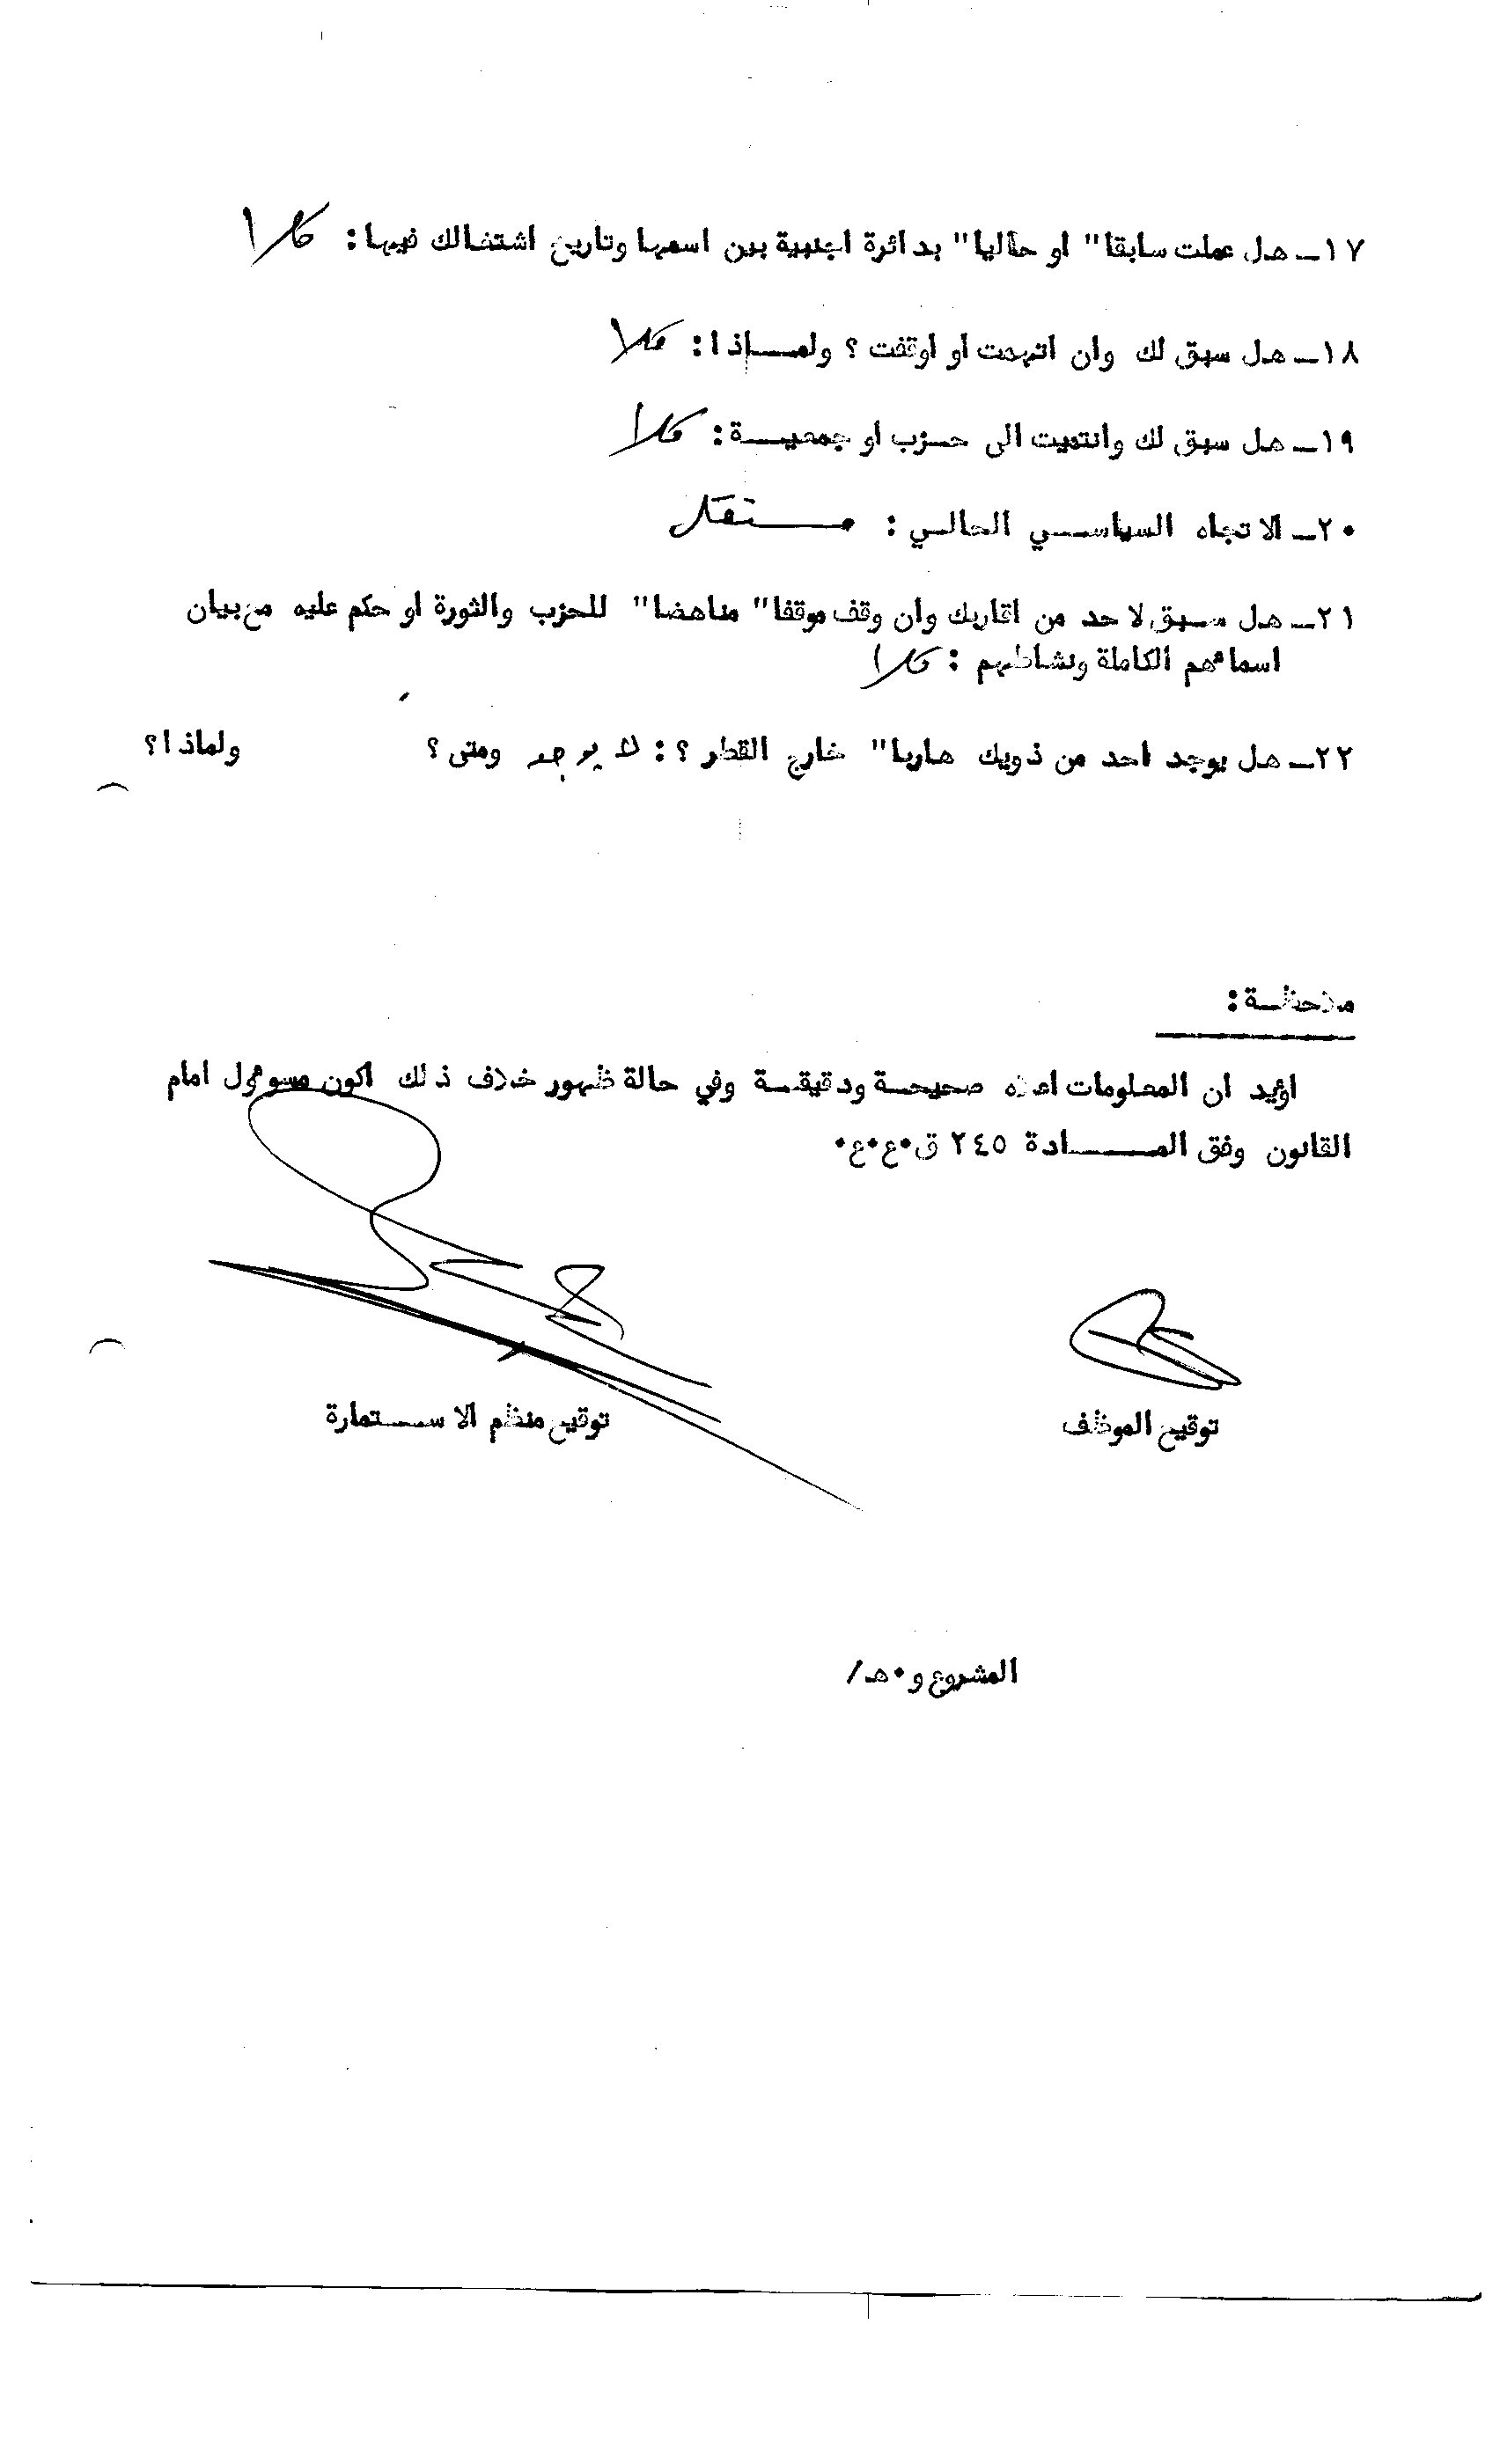 ١٧ــ هل عملت سابقا" او حاليا" بدائرة اجنبية بين اسمها وتاريخ اشتغالك فيها: كلا
١٨ــ هل سبق لك وان اتهمت او اوقفت ؟ ولمــاذا: كلا
١٩ــ هل سبق لك وانتميت الى حــزب او جمعيــة: كلا
٢٠ــ الاتجاه السياســي الحالــي : مستقل
٢١ــ هل سبق لاحد من اقاربك وان وقف موقفا" مناهضا" للحزب والثورة او حكم عليه مع بيان
اسمائهم الكاملة ونشاطهم : كلا
٢٢ــ هل يوجد احد من ذويك هاربا" خارج القطر ؟ : لا يوجد ومتى ؟ ولماذا؟
ملاحظــة:
اؤيد ان المعلومات اعلاه صحيحــة ودقيقــة وفي حالة ظهور خلاف ذلك اكون مسوءول امام
القانون وفق المــــادة ٢٤٥ ق٠ع٠ع٠
توقيع الموظف توقيع منظم الاســـتمارة
المشروع و٠هـ/